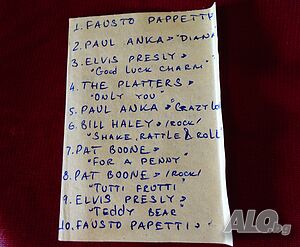 1. FAUSTO PAPPETTI
2. PAUL ANKA "DIANA
3. ELVIS PRESLY
"GOOD LUCK CHARM"
4. THE PLATTERS
"ONLY YOU"
5. PAUL ANKA "CRAZY LO
6. BILL HALEY /ROCK/
"SHAKE, RATTLE & ROLL"
7. PAT BOONE
"FOR A PENNY"
8. PAT BOONE /ROCK/
"TUTTI FRUTTI"
9. ELVIS PRESLY
"TEDDY BEAR"
10. FAUSTO PAPETTI
ALO.bg